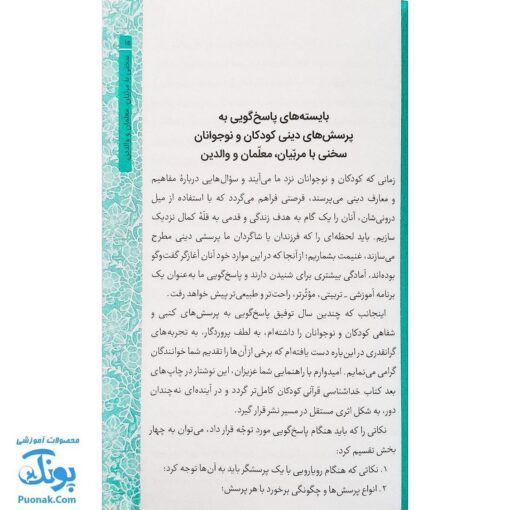 بایسته‌های پاسخ‌گویی به
پرسش‌های دینی کودکان و نوجوانان
سخنی با مربّیان، معلّمان و والدین
زمانی که کودکان و نوجوانان نزد ما می‌آیند و سؤال‌هایی دربارهٔ مفاهیم
و معارف دینی می‌پرسند، فرصتی فراهم می‌گردد که با استفاده از میل
درونی‌شان، آنان را یک گام به هدف زندگی و قدمی به قلّهٔ کمال نزدیک
سازیم. باید لحظه‌ای را که فرزندان یا شاگردان ما پرسشی دینی مطرح
می‌سازند، غنیمت بشماریم؛ از آنجا که در این موارد خود آنان آغازگر گفت‌وگو
بوده‌اند، آمادگی بیشتری برای شنیدن دارند و پاسخ‌گویی ما به‌عنوان یک
برنامه آموزشی ـ تربیتی، مؤثّرتر، راحت‌تر و طبیعی‌تر پیش خواهد رفت.
اینجانب که چندین سال توفیق پاسخ‌گویی به پرسش‌های کتبی و
شفاهی کودکان و نوجوانان را داشته‌ام، به لطف پروردگار، به تجربه‌های
گرانقدری در این‌باره دست یافته‌ام که برخی از آن‌ها را تقدیم شما خوانندگان
گرامی می‌نمایم. امیدوارم با راهنمایی شما عزیزان، این نوشتار در چاپ‌های
بعد کتاب خداشناسی قرآنی کودکان کامل‌تر گردد و در آینده‌ای نه‌چندان
دور، به شکل اثری مستقل در مسیر نشر قرار گیرد.
نکاتی را که باید هنگام پاسخ‌گویی مورد توجّه قرار داد، می‌توان به چهار
بخش تقسیم کرد:
۱. نکاتی که هنگام رویارویی با یک پرسشگر باید به آن‌ها توجه کرد؛
۲. انواع پرسش‌ها و چگونگی برخورد با هر پرسش؛
سخنی با مربّیان، معلّمان و والدین
محصولات آموزشی
پونک
Puonak.Com